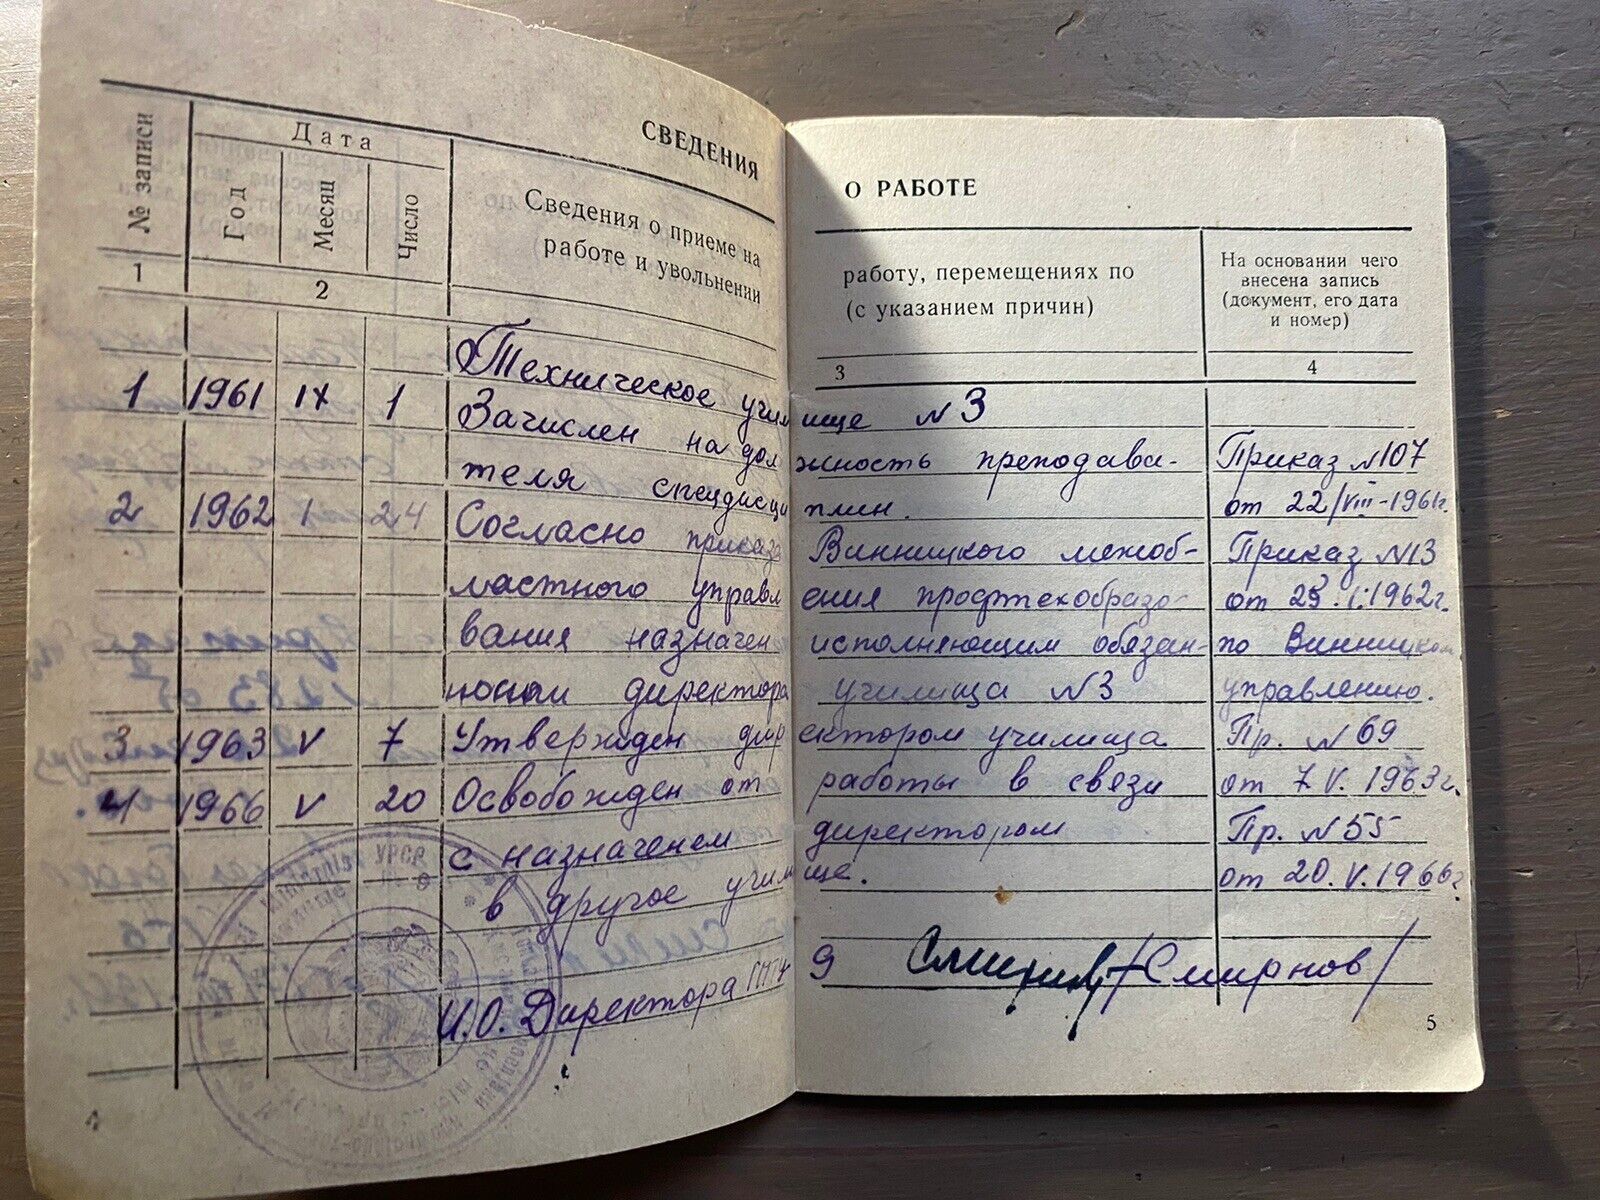 СВЕДЕНИЯ О РАБОТЕ
№ записи
Дата
Год
Месяц
Число
Сведения о приеме на работу, перемещениях по
работе и увольнении (с указанием причин)
На основании чего
внесена запись
(документ, его дата
и номер)
1 2 3 4
Техническое училище №3
1 1961 IX 1 Зачислен на должность преподава- Приказ №107
теля спецдисциплин. от 22/VIII-1961г.
2 1962 I 24 Согласно приказа Винницкого межоб- Приказ №13
ластного управления профтехобразо- от 23.I.1962г.
вания назначен исполняющим обязан- по Винницком
ностми директора училища №3 управлению.
3 1963 V 7 Утвержден директором училища Пр. №69
от 7.V.1963г.
4 1966 V 20 Освобожден от работы в связи
с назначенем директором Пр. №55
в другое училище. от 20.V.1966г
УРСР
И.О. Директора ГПТУ 9 /Смирнов/
4
5